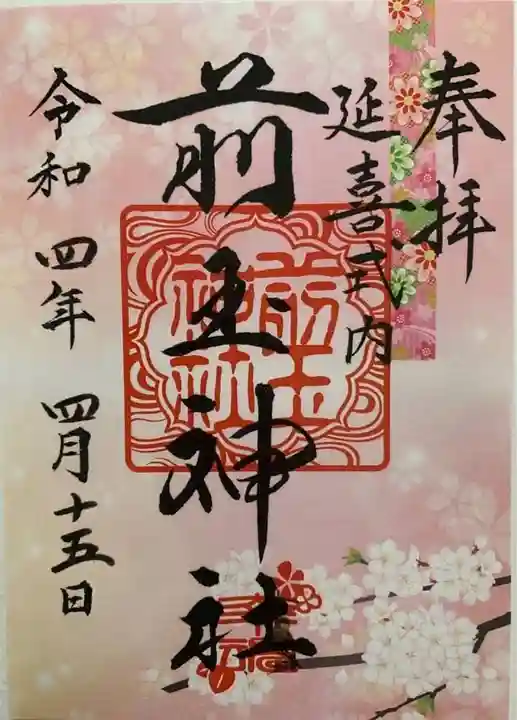 奉拝
延喜式内
前玉神社
前玉
神社
令和四年四月十五日